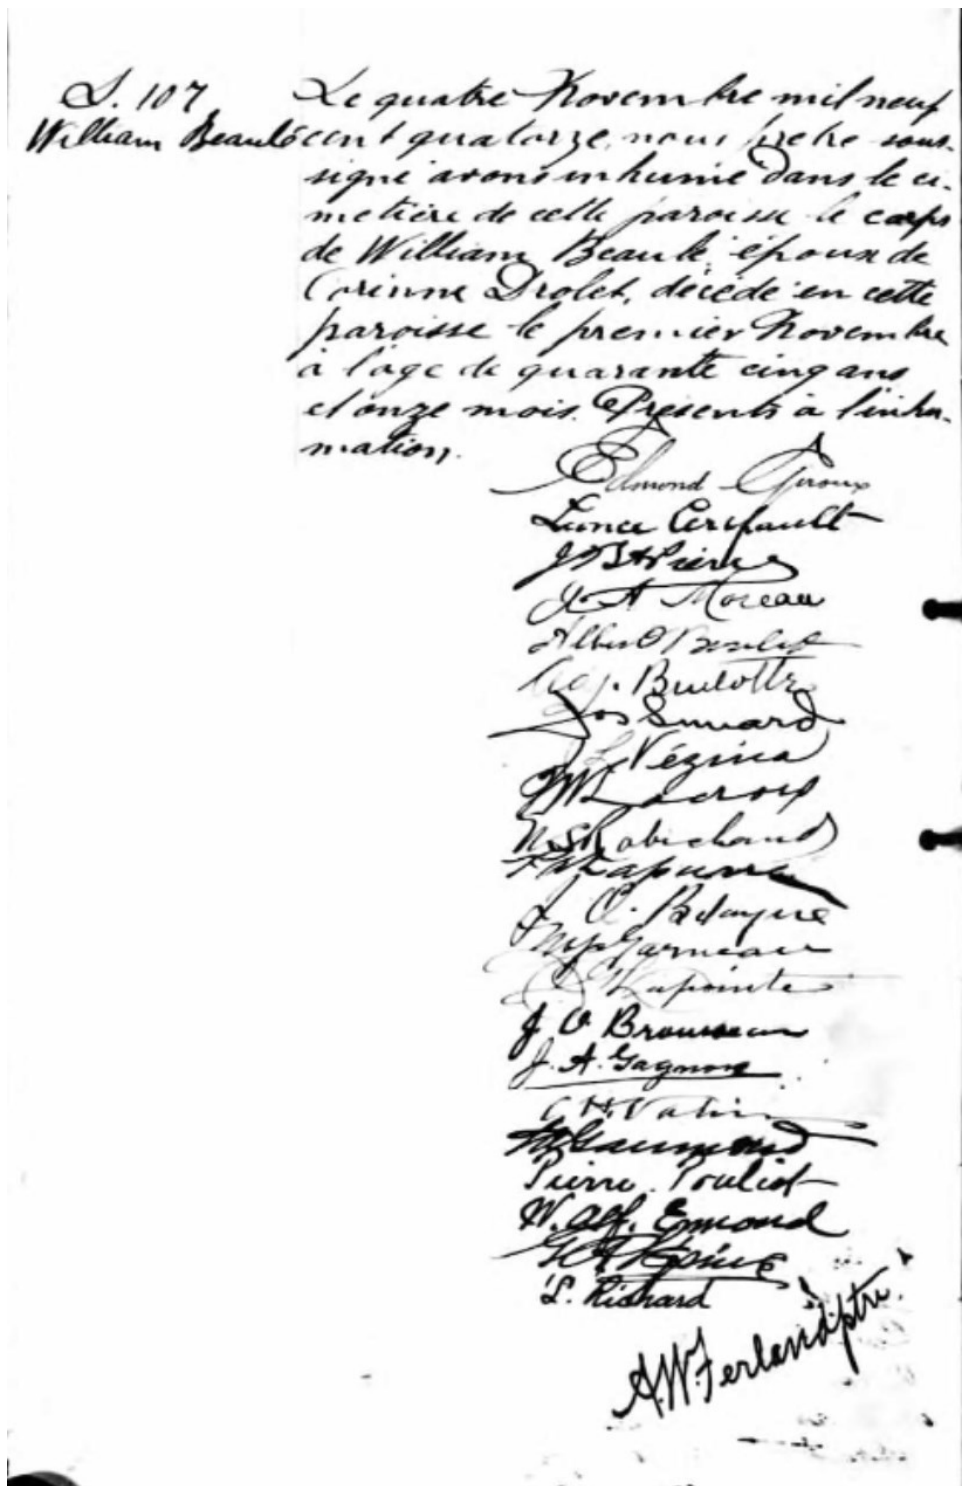 S. 107
William Beaulé
Le quatre Novembre mil neuf
cent quatorze, nous prêtre sous-
signé avons inhumé dans le ci-
metière de cette paroisse le corps
de William Beaulé, époux de
Corinne Drolet, décédé en cette
paroisse le premier Novembre
à l'âge de quarante cinq ans
et onze mois. Présents à l'inhu-
mation.
Edmond Giroux
J. A. Moreau
Albert
Jos Simard
Vézina
Lacroix
Robichaud
Garneau
Lapointe
J. O. Brousseau
J. A. Gagnon
Pierre Pouliot
W. Alf. Emond
L. Richard
A. W. Ferland ptre.